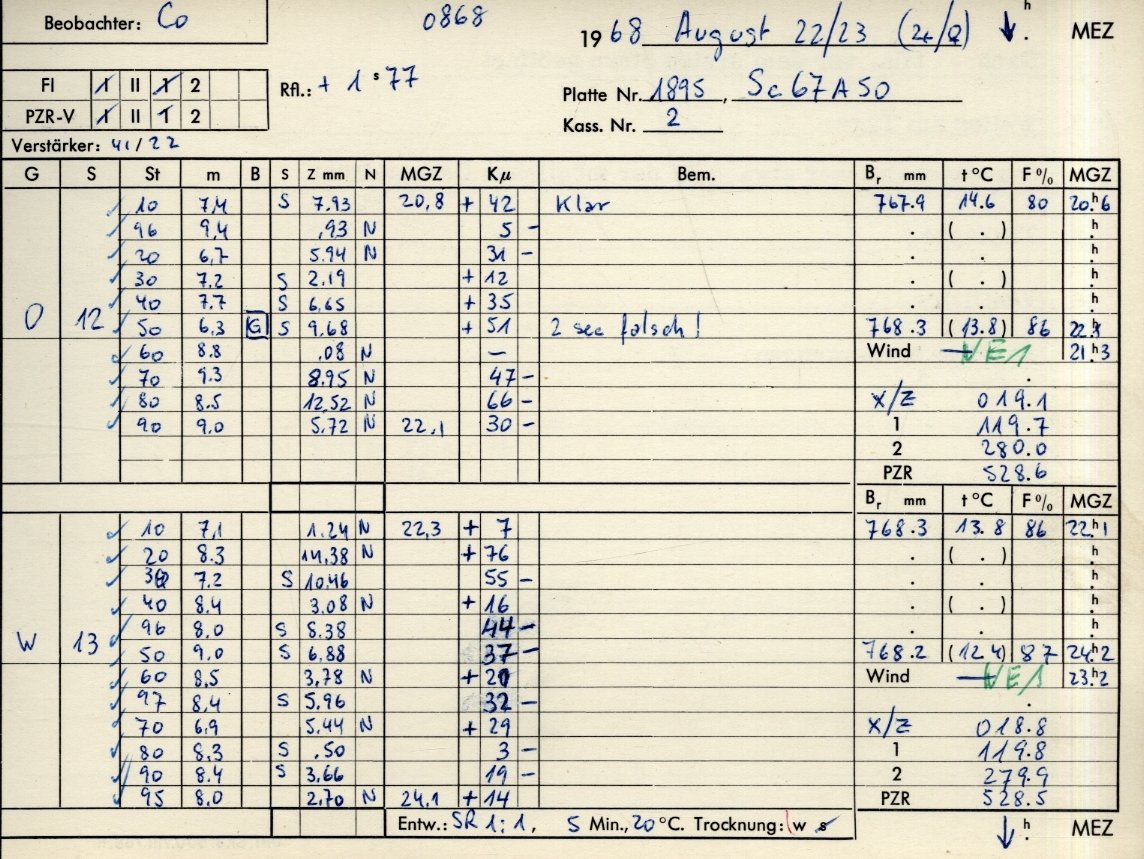 Beobachter: Co 0868 1968 August 22/23 h . MEZ
FI I II 1 2 Rfl.: + 1 s 77 Platte Nr. 1895, Sc 67 A 50
PZR-V I II 1 2 Kass. Nr. 2
Verstärker: 41/22
G S St m B S Z mm N MGZ Kμ Bem. Br mm t °C F % MGZ
10 7,4 S 7.93 20,8 + 42 Klar 767.9 14.6 80 20h6
96 9,4 ,93 N 5 - . ( . ) h .
20 6,7 5.94 N 31 - . . h .
30 7.2 S 2.19 + 12 . ( . ) h .
40 7.7 S 6,65 + 35 . . h .
O 12 50 6,3 G S 9,68 + 51 2 sec falsch! 768.3 (13.8) 86 22.h
60 8.8 .08 N - Wind NE1 21h3
70 9.3 8.95 N 47 - .
80 8.5 12,52 N 66 - X/Z 019.1
90 9,0 5,72 N 22,1 30 - 1 119.7
2 280.0
PZR 528.6
Br mm t °C F % MGZ
10 7,1 1.24 N 22,3 + 7 768.3 13.8 86 22h1
20 8.3 14,38 N + 76 . ( . ) h .
30 7.2 S 10,46 55 - . . h .
40 8.4 3.08 N + 16 . ( . ) h .
96 8.0 S 8.38 44 - . . h .
W 13 50 9,0 S 6,88 37 - 768.2 (12.4) 87 24h2
60 8,5 3,78 N + 20 Wind NE1 23h2
97 8,4 S 5,96 32 - .
70 6,9 5.44 N + 29 X/Z 018.8
80 8.3 S ,50 3 - 1 119.8
90 8.4 S 3,66 19 - 2 279.9
95 8,0 2,70 N 24,1 + 14 PZR 528.5
Entw.: SR 1:1, 5 Min., 20 °C. Trocknung: w s h . MEZ